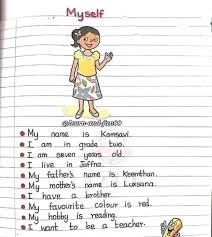 Myself
@learn-and-fun60
My name is Komsavi.
I am in grade two.
I am seven years old.
I live in Jaffna.
My father's name is Keenthan.
My mother's name is Luxsana.
I have a brother.
My favourite colour is red.
My hobby is reading.
I want to be a teacher.